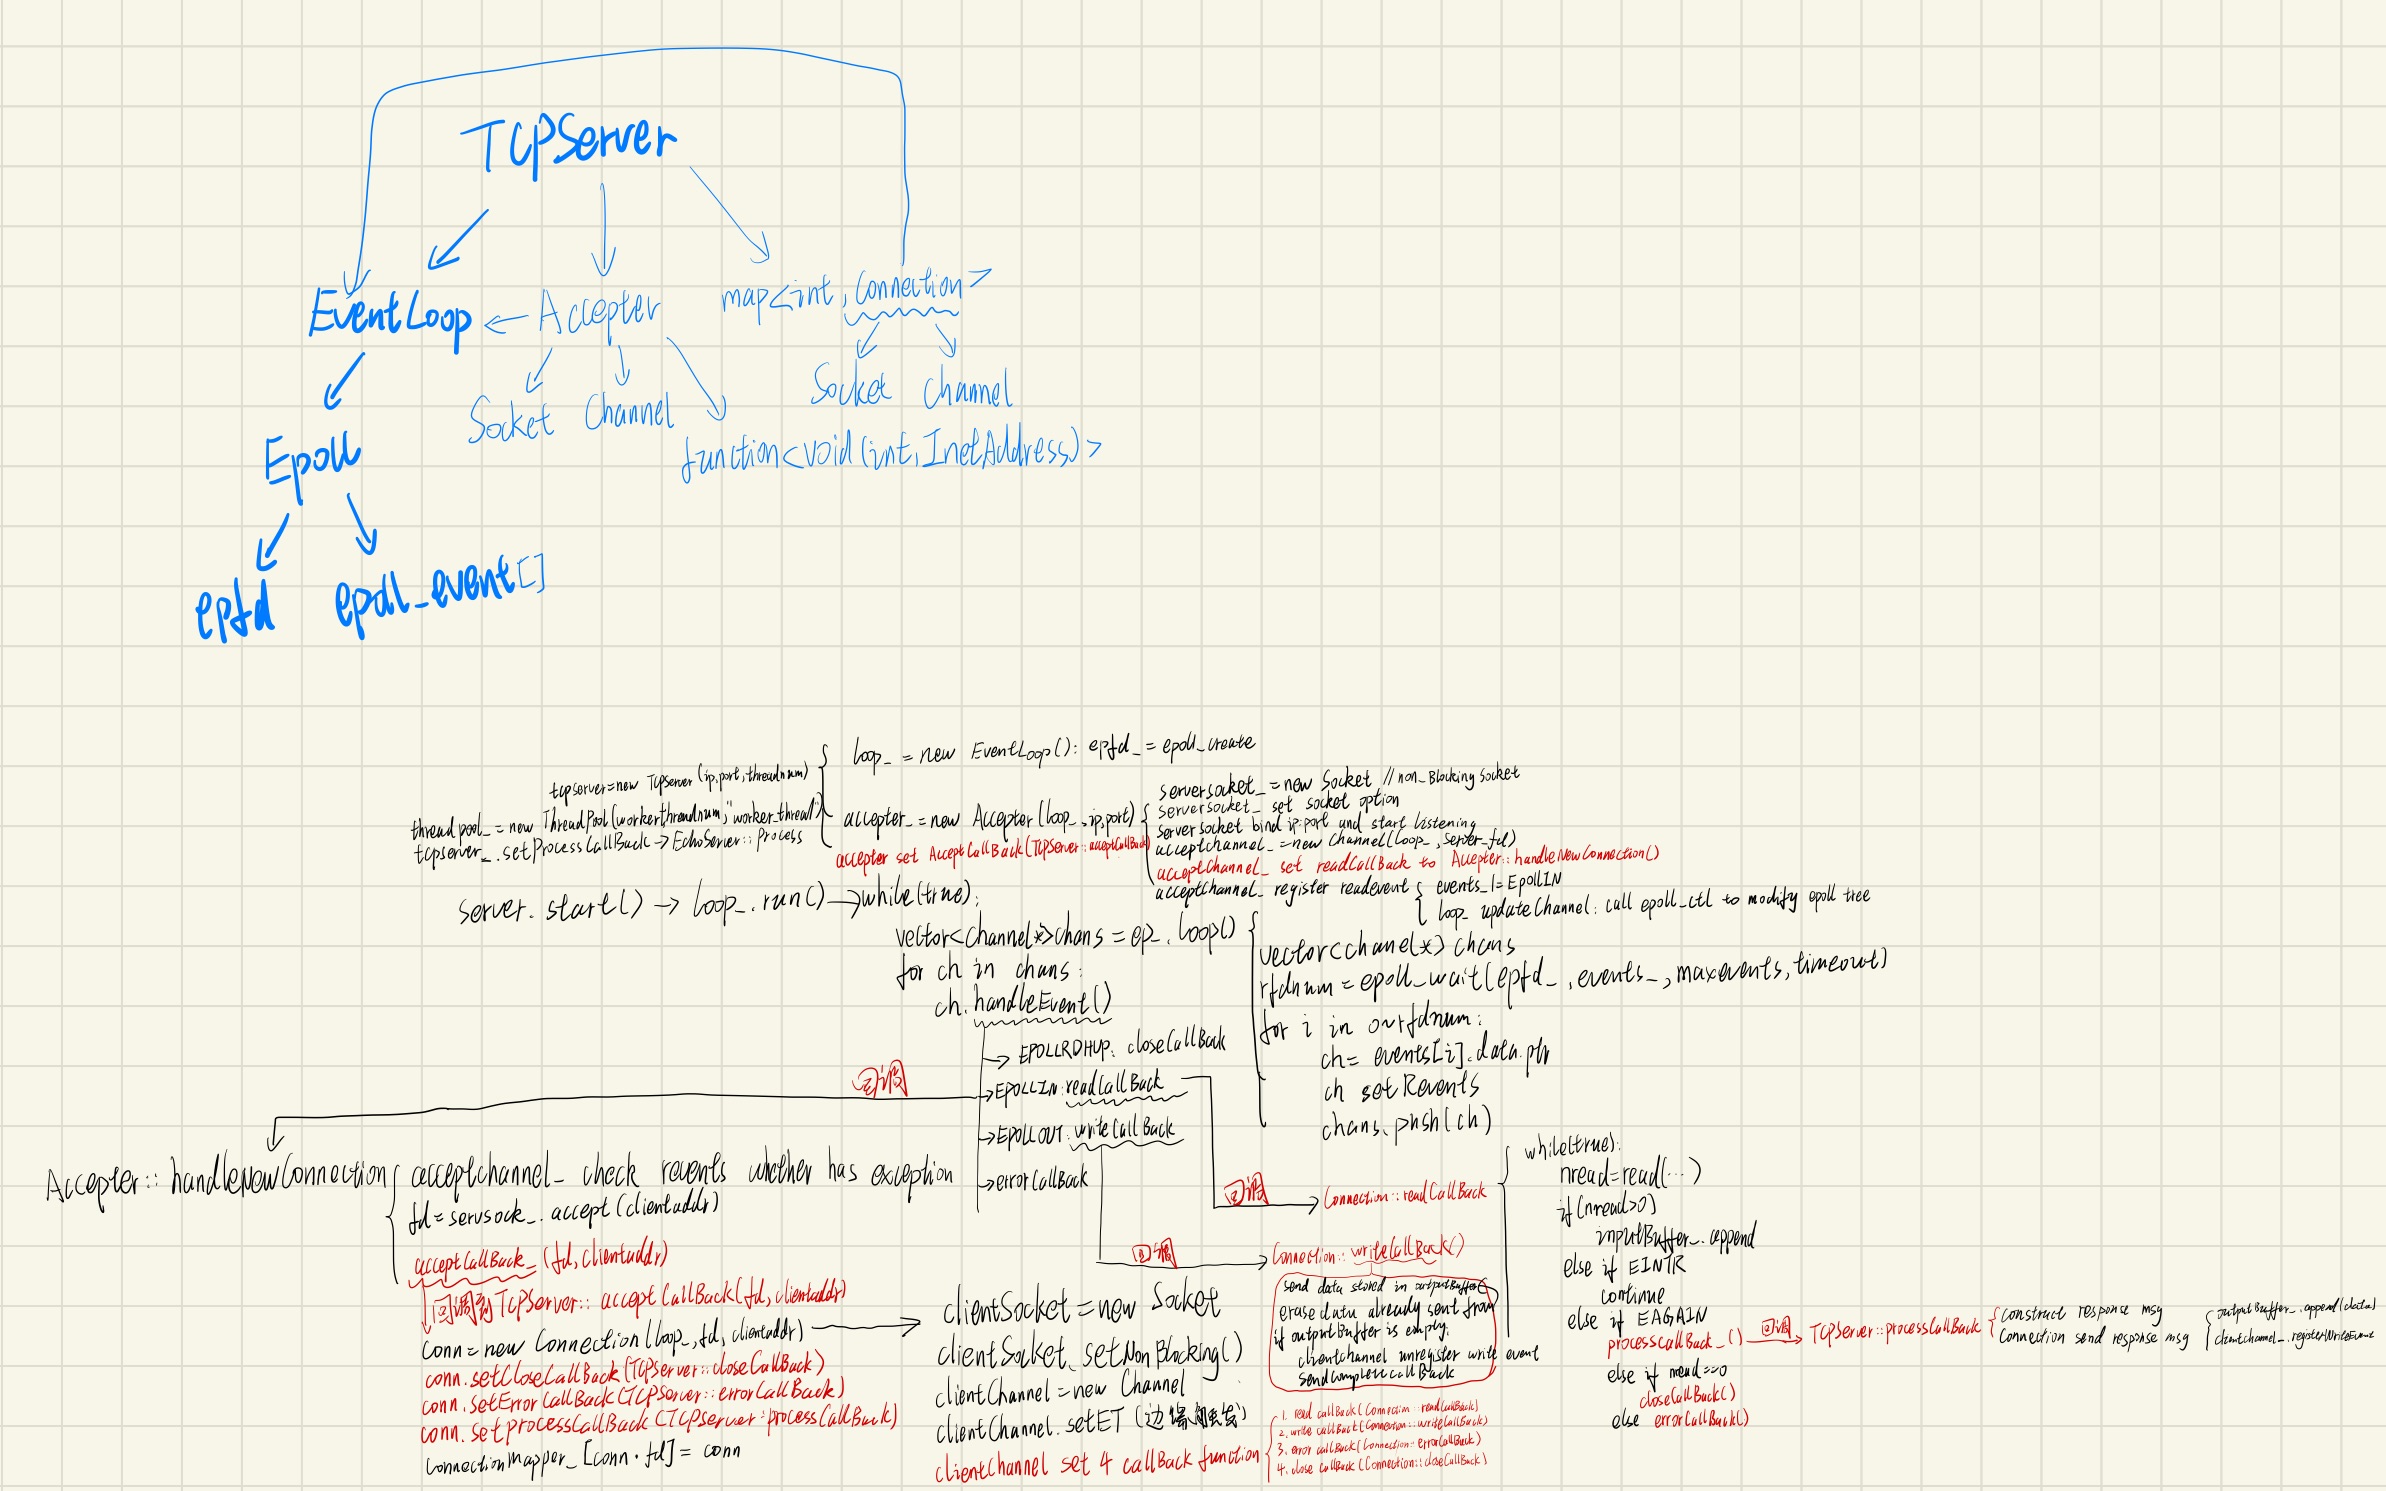 TCPServer
EventLoop
Accepter
map<int, Connection>
Socket
Channel
Socket
Channel
function<void(int, InetAddress)>
Epoll
epfd
epoll_event[]
tcpserver=new TcpServer(ip,port,threadnum)
threadpool_=new ThreadPool(workerthreadnum,"worker_thread")
tcpserver_.setProcessCallBack->EchoServer::Process
loop_=new EventLoop(): epfd_=epoll_create
accepter_=new Accepter(loop_,ip,port)
accepter set AcceptCallBack(TcpServer::acceptCallBack)
serversocket_=new Socket //non_Blocking socket
serversocket_ set socket option
serversocket bind ip:port and start listening
acceptchannel_=new Channel(loop_,server_fd)
acceptChannel_ set readCallBack to Accepter::handleNewConnection()
acceptChannel_ register readevent
events_|=EpollIN
loop_ updateChannel: call epoll_ctl to modify epoll tree
server.start() → loop_.run() → while(true):
vector<Channel*>chans=ep_.loop()
for ch in chans:
ch.handleEvent()
vector<chanel*> chans
rfdnum=epoll_wait(epfd_,events_,maxevents,timeout)
for i in 0~rfdnum:
ch= events[i].data.ptr
ch setRevents
chans.push(ch)
EPOLLRDHUP: closeCallBack
EPOLLIN:readCallBack
EPOLLOUT:writeCallBack
errorCallBack
回调
Accepter::handleNewConnection
acceptchannel_ check revents whether has exception
fd=servsock_.accept(clientaddr)
acceptCallBack_(fd,clientaddr)
回调到TcpServer::acceptCallBack(fd,clientaddr)
conn=new Connection(loop_,fd,clientaddr)
conn.setCloseCallBack(TCPServer::closeCallBack)
conn.setErrorCallBack(TCPServer::errorCallBack)
conn.setprocessCallBack(TCPServer:processCallBack)
connectionMapper_[conn.fd]=conn
clientSocket=new Socket
clientSocket_setNonBlocking()
clientChannel=new Channel
clientChannel.setET(边缘触发)
clientChannel set 4 callBack function
1. read callBack(Connection::readCallBack)
2. write callBack(Connection::writeCallBack)
3. error callBack(Connection::errorCallBack)
4. close callBack(Connection::closeCallBack)
回调
Connection::writeCallBack()
send data stored in outputBuffer
erase data already sent from
if outputBuffer is empty:
clientchannel unregister write event
sendcompletecallBack
回调
Connection::readCallBack
while(true):
nread=read(...)
if(nread>0)
inputBuffer_.append
else if EINTR
continue
else if EAGAIN
processCallBack_()
回调
TCPServer::processCallBack
construct response msg
Connection send response msg
outputBuffer_.append(data)
clientchannel_.registerWriteEvent
else if nread==0
closeCallBack()
else errorCallBack()